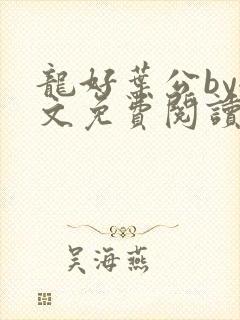 龍好葉公by
文免費閱讀
吴海燕